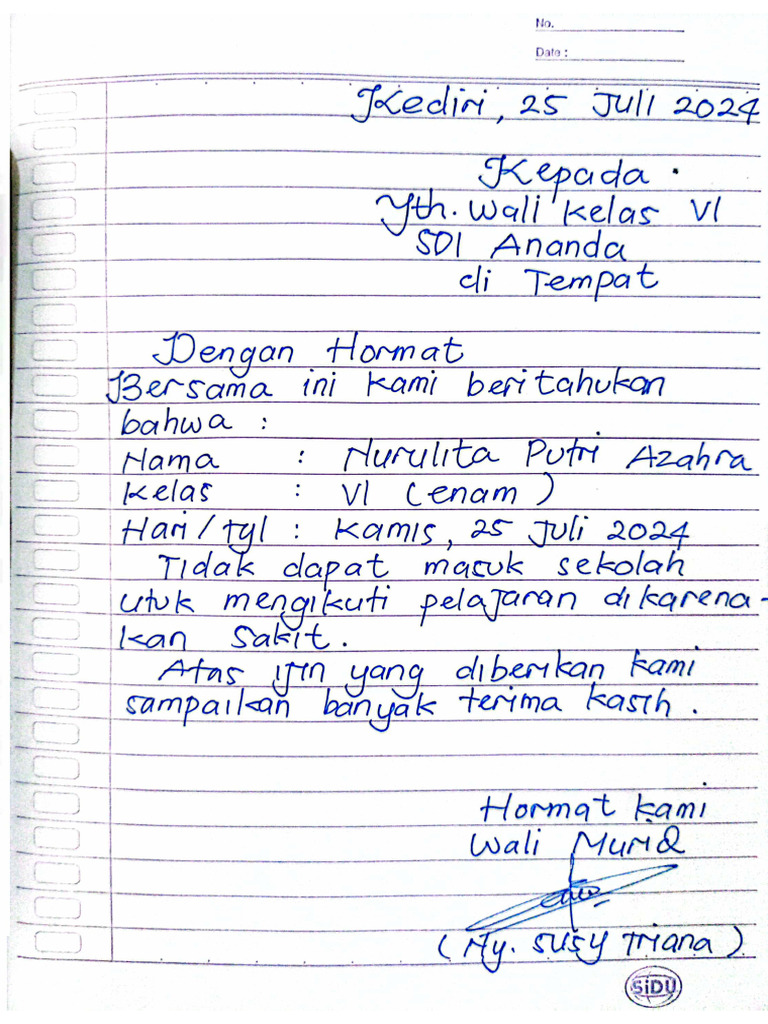 No.
Date :
Kediri, 25 Juli 2024
Kepada .
Yth. Wali Kelas VI
SDI Ananda
di Tempat
Dengan Hormat
Bersama ini kami beritahukan
bahwa :
Nama : Nurulita Putri Azahra
Kelas : VI (enam)
Hari/Tgl : Kamis, 25 Juli 2024
Tidak dapat masuk sekolah
utuk mengikuti pelajaran dikarena-
kan sakit.
Atas ijin yang diberikan kami
sampaikan banyak terima kasih.
Hormat kami
Wali Murid
(Ny. Susy Triana)
SiDU